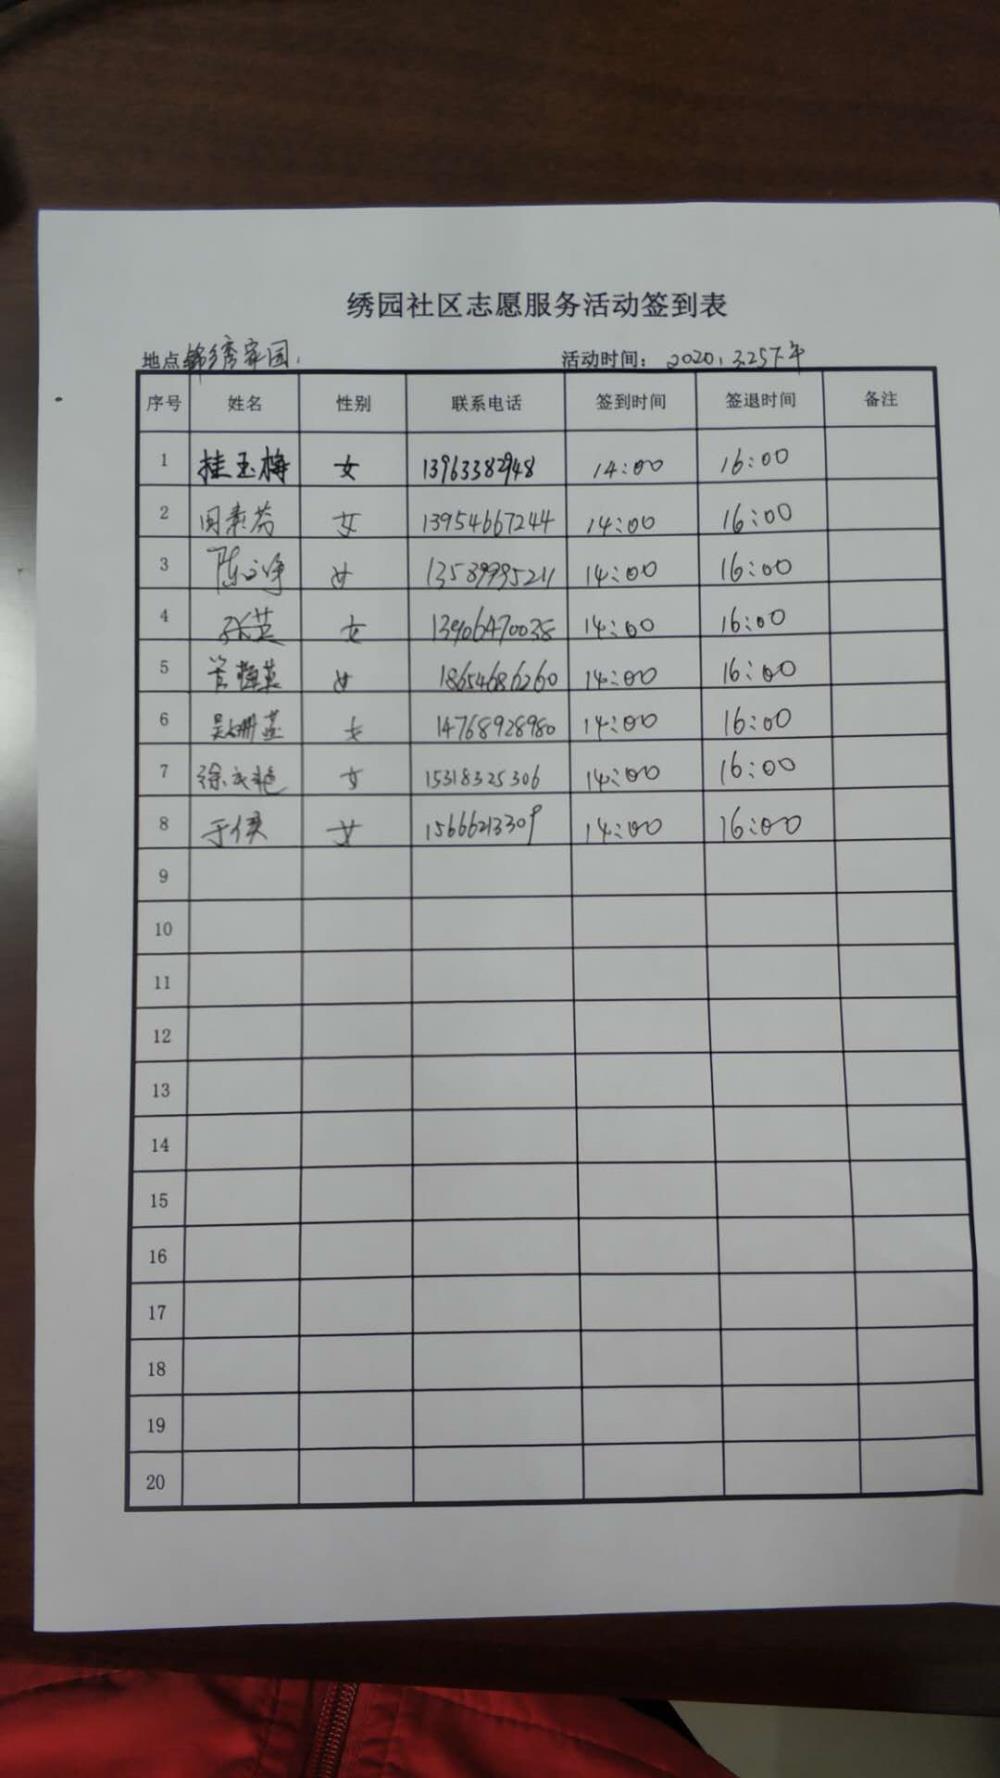 绣园社区志愿服务活动签到表
地点 锦绣家园. 活动时间: 2020.3.25下午
序号 姓名 性别 联系电话 签到时间 签退时间 备注
1 桂玉梅 女 13963382948 14:00 16:00
2 周素芬 女 13954667244 14:00 16:00
3 陈 女 13589995211 14:00 16:00
4 张英 女 13906470038 14:00 16:00
5 女 18654686260 14:00 16:00
6 吴 女 14768928980 14:00 16:00
7 徐 女 15318325306 14:00 16:00
8 于 女 15666213309 14:00 16:00
9
10
11
12
13
14
15
16
17
18
19
20